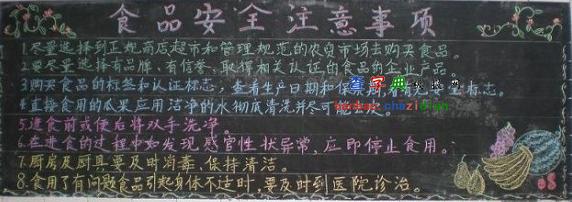 食品安全注意事项
1.尽量选择到正规商店超市和管理规范的农贸市场去购买食品。
2.要尽量选择有品牌、有信誉、取得相关认证的食品的企业产品。
3.购买食品的标签和认证标志,查看生产日期和保质期,看有 标志。
4.直接食用的瓜果应用洁净的水彻底清洗并尽可能去皮。
5.进食前或便后将双手洗净。
6.在进食的过程中如发现感官性状异常,应即停止食用。
7.厨房及厨具要及时消毒、保持清洁。
8.食用了有问题食品引起身体不适时,要及时到医院诊治。
查字典
chazidian